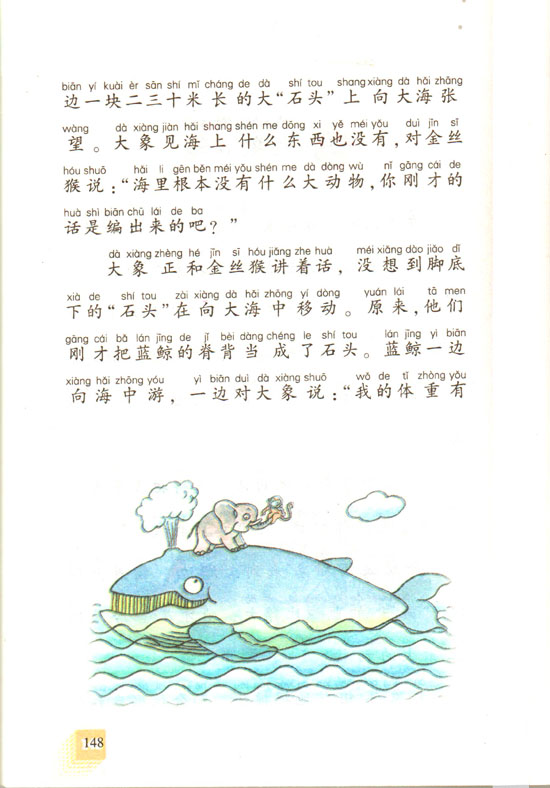 biān yí kuài èr sān shí mǐ cháng de dà shí tou shang xiàng dà hǎi zhāng
边一块二三十米长的大“石头”上向大海张
wàng dà xiàng jiàn hǎi shang shén me dōng xi yě méi yǒu duì jīn sī
望。大象见海上什么东西也没有,对金丝
hóu shuō hǎi li gēn běn méi yǒu shén me dà dòng wù nǐ gāng cái de
猴说:“海里根本没有什么大动物,你刚才的
huà shì biān chū lái de ba
话是编出来的吧?”
dà xiàng zhèng hé jīn sī hóu jiǎng zhe huà méi xiǎng dào jiǎo dǐ
大象正和金丝猴讲着话,没想到脚底
xià de shí tou zài xiàng dà hǎi zhōng yí dòng yuán lái tā men
下的“石头”在向大海中移动。原来,他们
gāng cái bǎ lán jīng de jǐ bèi dàng chéng le shí tou lán jīng yì biān
刚才把蓝鲸的脊背当成了石头。蓝鲸一边
xiàng hǎi zhōng yóu yì biān duì dà xiàng shuō wǒ de tǐ zhòng yǒu
向海中游,一边对大象说:“我的体重有
148